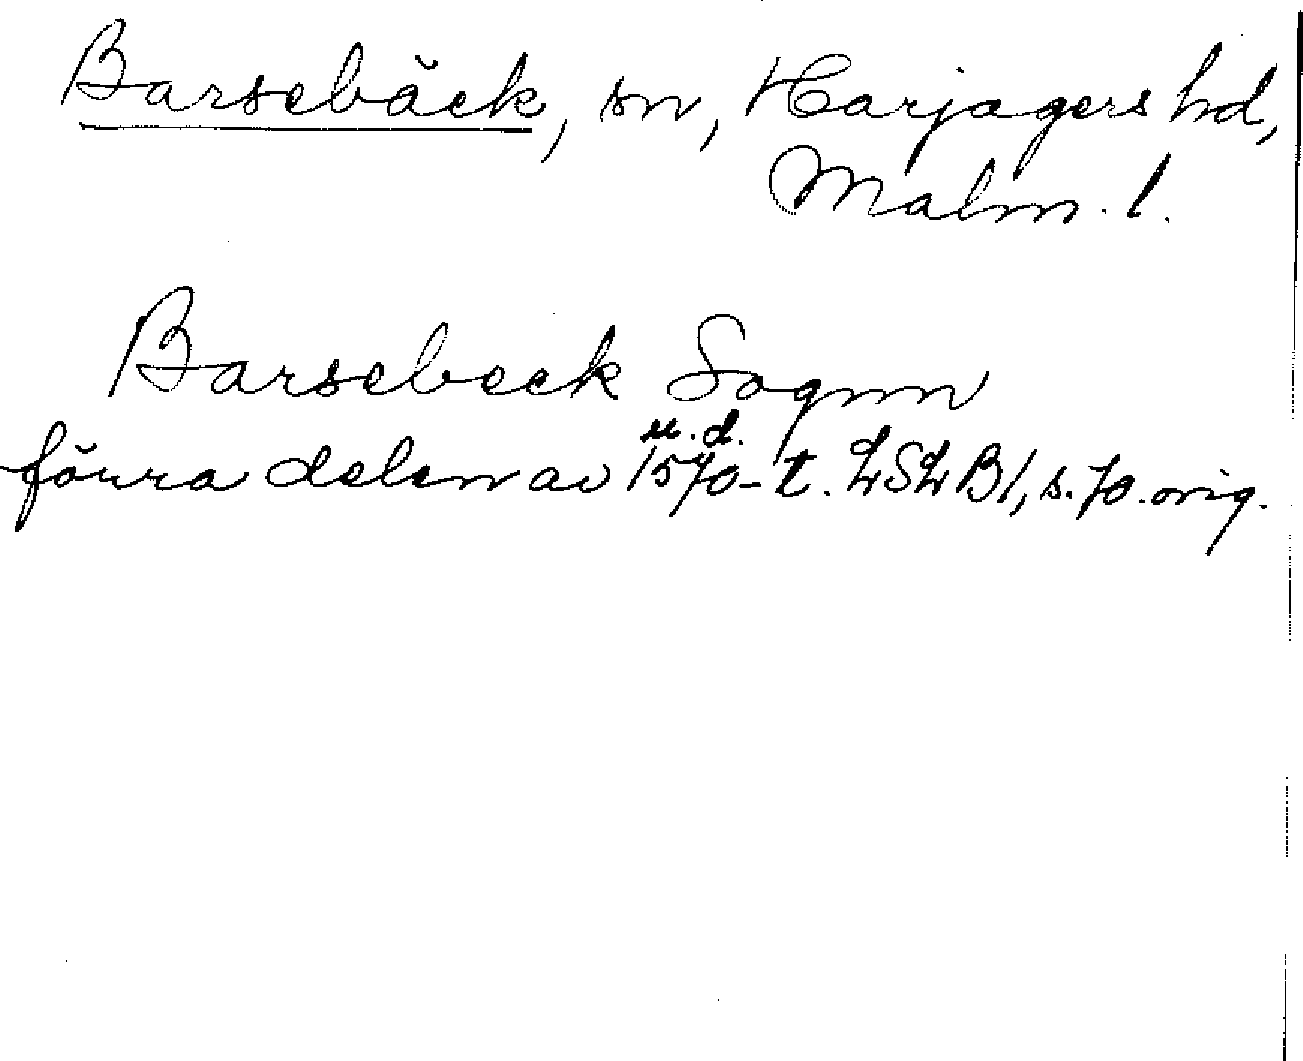 Barsebäck, sn, Harjagers hd,
Malm. l.
Barsebeck Sognn
u. d.
förra delen av 1570-t. LSLB1, s. 70. orig.